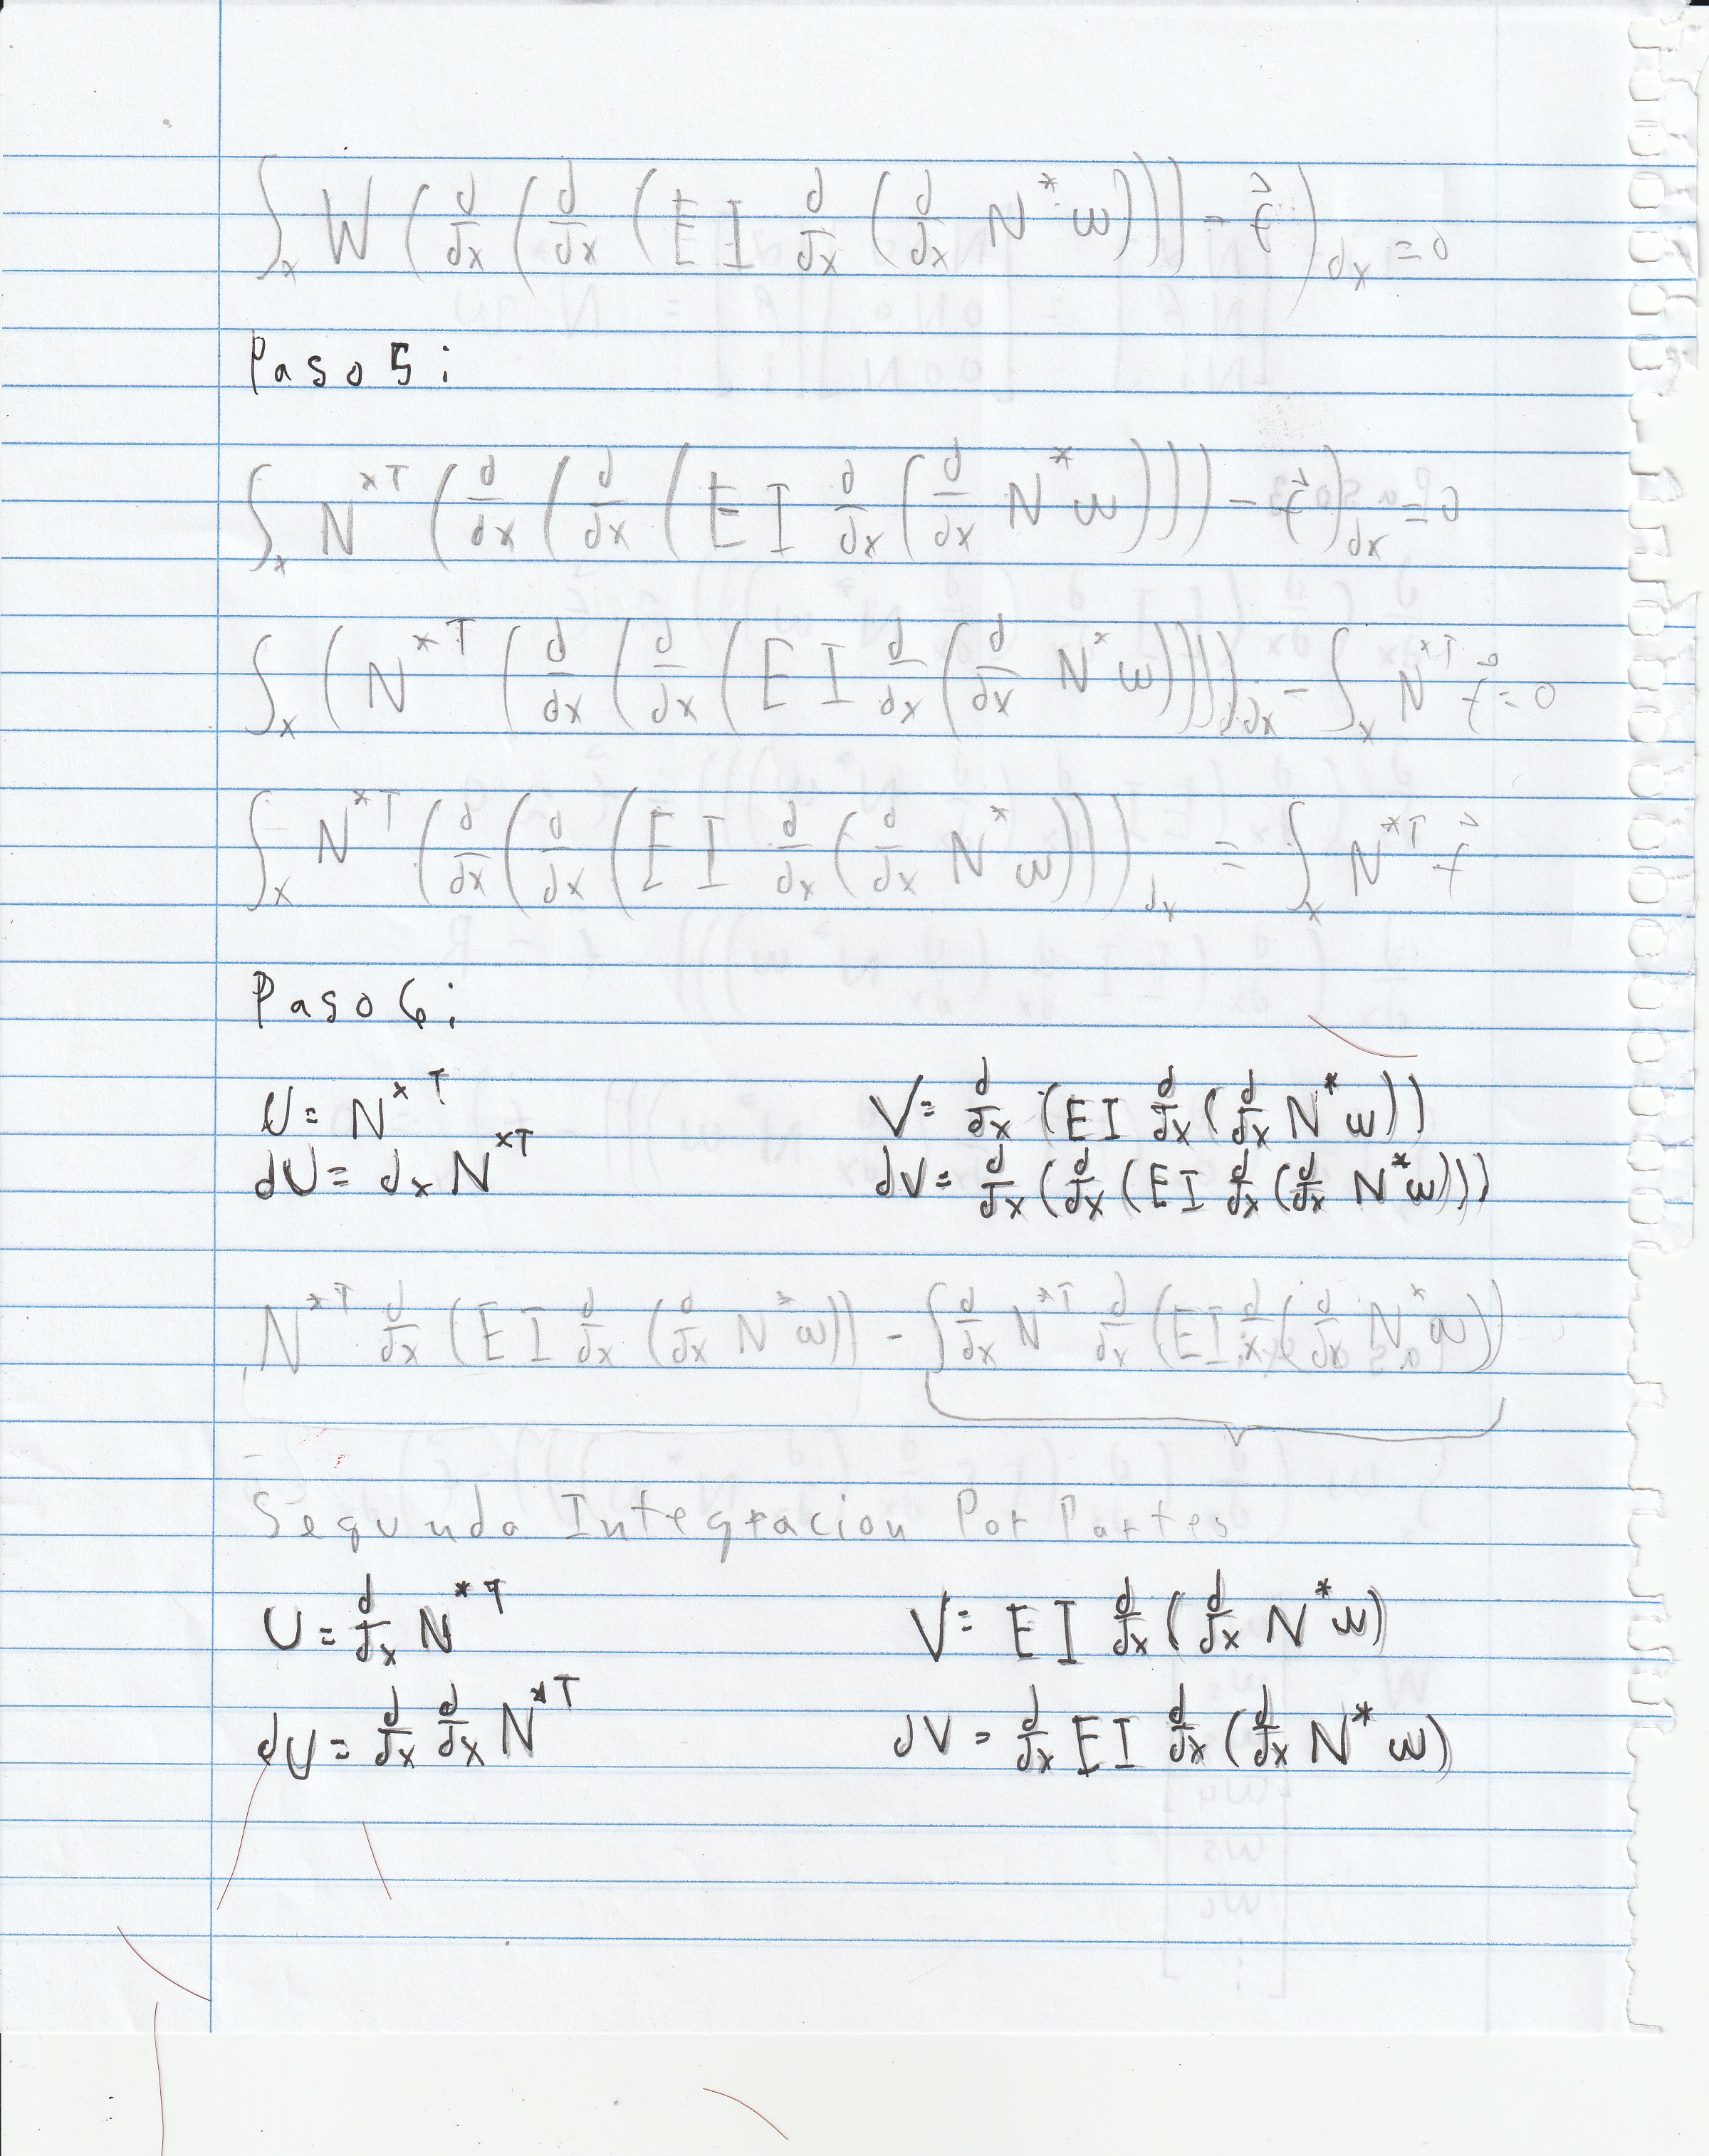 ∫x W (d/dx (d/dx (E I d/dx (d/dx N* w))) - f̂) dx = 0
Paso 5:
∫x N*T (d/dx (d/dx (E I d/dx (d/dx N* w))) - f̂) dx = 0
∫x (N*T (d/dx (d/dx (E I d/dx (d/dx N* w))))) dx - ∫x N*T f̂ = 0
∫x N*T (d/dx (d/dx (E I d/dx (d/dx N* w))) dx = ∫x N*T f̂
Paso 6:
U = N*T V = d/dx (E I d/dx (d/dx N* w))
dU = dx N*T dV = d/dx (d/dx (E I d/dx (d/dx N* w)))
N*T d/dx (E I d/dx (d/dx N* w)) - ∫ d/dx N*T d/dx (E I d/x (d/dx N* w))
Segunda Integracion Por Partes
U = d/dx N*T V = E I d/dx (d/dx N* w)
dU = d/dx d/dx N*T dV = d/dx E I d/dx (d/dx N* w)